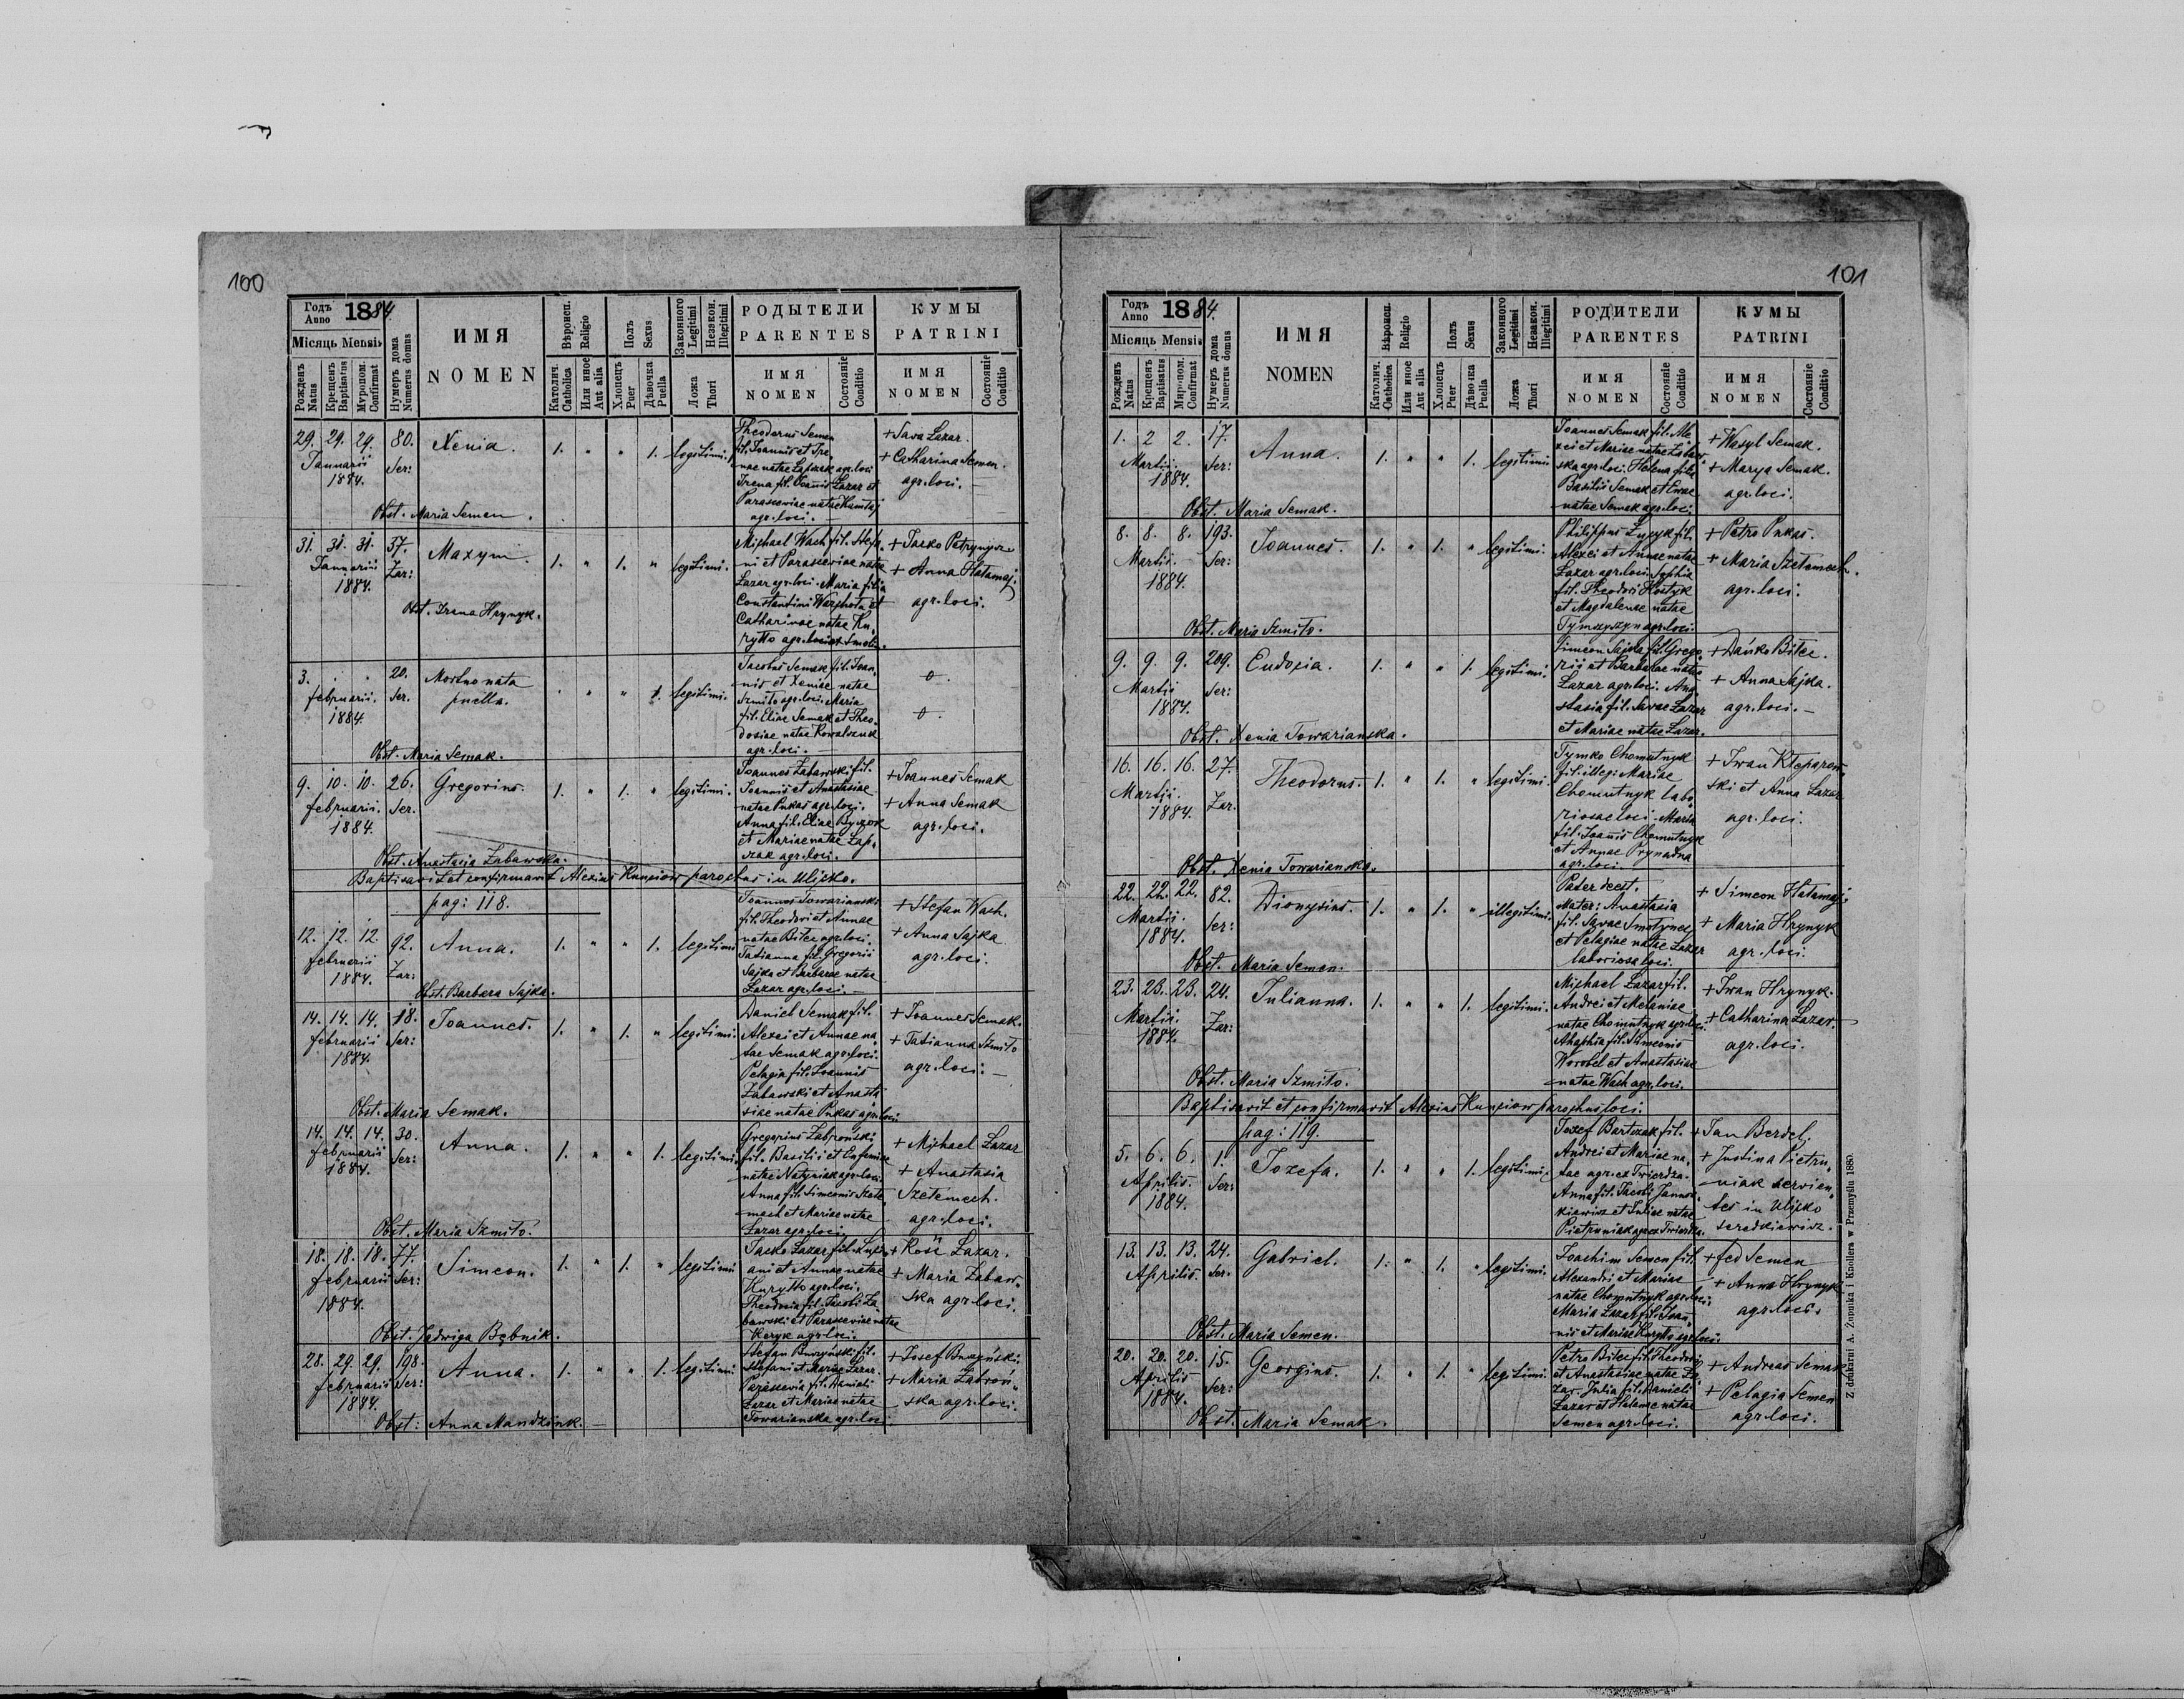 100
Годъ Anno 1884
Місяць Mensis
Рожденъ Natus
Крещенъ Baptisatus
Мѵропом. Confirmat
Нумеръ дома Numerus domus
ИМЯ
NOMEN
Вѣроисп. Religio
Католич. Catholica
Или иное Aut alia
Полъ Sexus
Хлопецъ Puer
Дѣвочка Puella
Законного Legitimi
Незакон. Illegitimi
Ложа Thori
РОДЫТЕЛИ
PARENTES
ИМЯ NOMEN
Состоянiе Conditio
КУМЫ
PATRINI
ИМЯ NOMEN
Состоянiе Conditio
29. 29. 29. 80. Xenia. 1. " " 1. legitimi.
Januarii Ser:
1884.
Theodorus Semen
fil. Joannis et Ire,
nae natae Łapszak agr. loci
Irena fil. Joannis Lazar et
Parasceviae natae Hamtaj
agr. loci.
+ Sava Lazar.
+ Catharina Semen.
agr. loci.
Obst. Maria Semen.
31. 31. 31. 37. Maxym. 1. " 1. " legitimi.
Januarii Zar:
1884.
Michael Wach fil. Stefa,
ni et Parasceviae natae
Lazar agr. loci. Maria filia
Constantini et
Catharinae natae Ku,
ryłło agr.
+ Jacko
+ Anna Hałamaj.
agr. loci.
Obst. Irena Hrynyk.
3. . . 20. Mortuo nata " " 1. legitimi.
februarii. Ser. puella.
1884.
Jacobus Semak fil. Joan,
nis et Xeniae natae
Szmiło agr. loci. Maria
fil. Eliae Semak et Theo,
dosiae natae Kowalczuk
agr. loci.
0.
0.
Obst. Maria Semak.
9. 10. 10. 26. Gregorius. 1. " 1. " legitimi.
februarii. Ser.
1884.
Joannes Zabawski fil.
Joannis et Anastasiae
natae Pukas agr. loci.
Anna fil. Eliae Byczok
et Mariae natae Łap,
szak agr. loci.
+ Joannes Semak
+ Anna Semak
agr. loci.
Obst. Anastasia Zabawska.
Baptisavit et confirmavit Alexius Kunciow parochus in Ulicko.
pag: 118.
12. 12. 12. 92. Anna. 1. " " 1. legitimi
februarii Zar:
1884.
Joannes Towarianski
fil. Theodori et Annae
natae Bilec agr. loci.
Tatianna fil. Gregorii
Sajka et Barbarae natae
Lazar agr. loci.
+ Stefan Wach.
+ Anna Sajka
agr. loci.
Obst. Barbara Sajka.
14. 14. 14. 18. Joannes. 1. " 1. " legitimi.
februarii Ser:
1884.
Daniel Semak fil.
Alexei et Annae na,
tae Semak agr. loci.
Pelagia fil. Joannis
Zabawski et Anasta
siae natae Pukas agr. loci.
+ Joannes Semak.
+ Tatianna Szmiło
agr. loci.
Obst. Maria Semak.
14. 14. 14. 30. Anna. 1. " " 1. legitimi.
februarii Ser:
1884.
Gregorius Zabroński
fil. Basilii et Eufemiae
natae agr. loci.
Anna fil. Simeonis Szete
mech et Mariae natae
Lazar agr. loci.
+ Michael Lazar
+ Anastasia
Szetemech.
agr. loci.
Obst. Maria Szmiło.
18. 18. 18. 77. Simeon. 1. " 1. " legitimi
februarii Ser:
1884.
Jacko Lazar fil.
ani et Annae natae
Kuryłło agr. loci.
Theodosia fil. Jacobi Za,
bawski et Parasceviae natae
Keryk agr. loci.
+ Kość Lazar.
+ Maria Zabaw,
ska agr. loci.
Obst. Jadwiga Bębnik.
28. 29. 29. 198. Anna. 1. " " 1. legitimi
februarii Ser:
1884.
Stefan Buczyński fil.
Stefani et Mariae Lazar.
Parascevia fil. Danieli
Lazar et Mariae natae
Towarianska agr. loci
+ Josef Buczyński.
+ Maria Zabroń,
ska agr. loci.
Obst: Anna Mandziuk.
101
Годъ Anno 1884.
Місяць Mensis
Рожденъ Natus
Крещенъ Baptisatus
Миропом. Confirmat
Нумеръ дома Numerus domus
ИМЯ
NOMEN
Вѣроисп. Religio
Католич. Catholica
Или иное Aut alia
Полъ Sexus
Хлопецъ Puer
Дѣвочка Puella
Законного Legitimi
Незакон. Illegitimi
Ложа Thori
РОДИТЕЛИ
PARENTES
ИМЯ NOMEN
Состоянiе Conditio
КУМЫ
PATRINI
ИМЯ NOMEN
Состоянiе Conditio
1. 2 2. 17. Anna. 1. " " 1. legitimi
Martii. Ser:
1884.
Joannes Semak fil. Ale
xei et Mariae natae Zabaw
ska agr. loci. Helena filia
Basilii Semak et Evae
natae Semak agr. loci.
+ Wasyl Semak.
+ Marya Semak.
agr. loci.
Obst. Maria Semak.
8. 8. 8. 193. Joannes. 1. " 1. " legitimi.
Martii. Ser:
1884.
Philippus fil.
Alexei et Annae natae
Lazar agr. loci. Sophia
fil. Theodori Kostyk
et Magdalenae natae
Tymczyszyn agr. loci.
+ Petro Pukas.
+ Maria Szetemech.
agr. loci.
Obst. Maria Szmiło.
9. 9. 9. 209. Eudoxia. 1. " " 1. legitimi.
Martii Ser:
1884.
Simeon Sajka fil. Grego,
rii et Barbarae natae
Lazar agr. loci. Ana
stasia fil. Savae Lazar
et Mariae natae Lazar.
+ Dańko Bilec.
+ Anna Sajka.
agr. loci.
Obst. Xenia Towarianska.
16. 16. 16. 27. Theodorus. 1. " 1. " legitimi.
Martii. Zar.
1884.
Tymko Chomutnyk
fil. illeg: Mariae
Chomutnyk labo,
riosae loci. Maria
fil. Joannis Chomutnyk
et Annae
agr. loci.
+ Iwan Kleparow,
ski et Anna Lazar
agr. loci.
Obst. Xenia Towarianska.
22. 22. 22. 82. Dionysius. 1. " 1. " illegitimi.
Martii. Ser:
1884.
Pater deest.
Mater: Anastasia
fil. Savae Smolynec
et Pelagiae natae Lazar
laboriosa loci.
+ Simeon Hałamaj.
+ Maria Hrynyk
agr. loci.
Obst. Maria Semen.
23. 23. 23. 24. Julianna. 1. " " 1. legitimi.
Martii. Zar:
1884.
Michael Lazar fil.
Andrei et Melaniae
natae Chomutnyk agr. loci.
Ahaphia fil. Simeonis
Worobel et Anastasiae
natae Wach agr. loci.
+ Iwan Hrynyk.
+ Catharina Lazar.
agr. loci.
Obst. Maria Szmiło.
Baptisavit et confirmavit Alexius Kunciow parochus loci.
pag: 119.
5. 6. 6. 1. Jozefa. 1. " " 1. legitimi.
Aprilis. Ser:
1884.
Jozef Bartczak fil.
Andrei et Mariae na,
tae agr. ex Twierdza.
Anna fil. Jacobi
kiewicz et Juliae natae
Pietruniak agr. ex Twierdza.
+ Jan Berdel.
+ Justina Pietru,
niak servien,
tes in Ulicko
seredkiewicz.
13. 13. 13. 24. Gabriel. 1. " 1. " legitimi.
Aprilis. Ser.
Joachim Semen fil.
Alexandri et Mariae
natae Chomutnyk agr. loci.
Maria Lazar fil. Joan,
nis et Mariae Kuryłło agr. loci.
+ fed Semen
+ Anna Hrynyk
agr. loci.
Obst. Maria Semen.
20. 20. 20. 15. Georgius. 1. " 1. " legitimi.
Aprilis Ser:
1884.
Petro Bilec fil. Theodori
et Anastasiae natae La
zar. Julia fil. Danieli
Lazar et Helenae natae
Semen agr. loci.
+ Andreas Semak
+ Pelagia Semen
agr. loci.
Obst. Maria Semak.
Z drukarni A. Żupnika i Knollera w Przemyślu 1880.